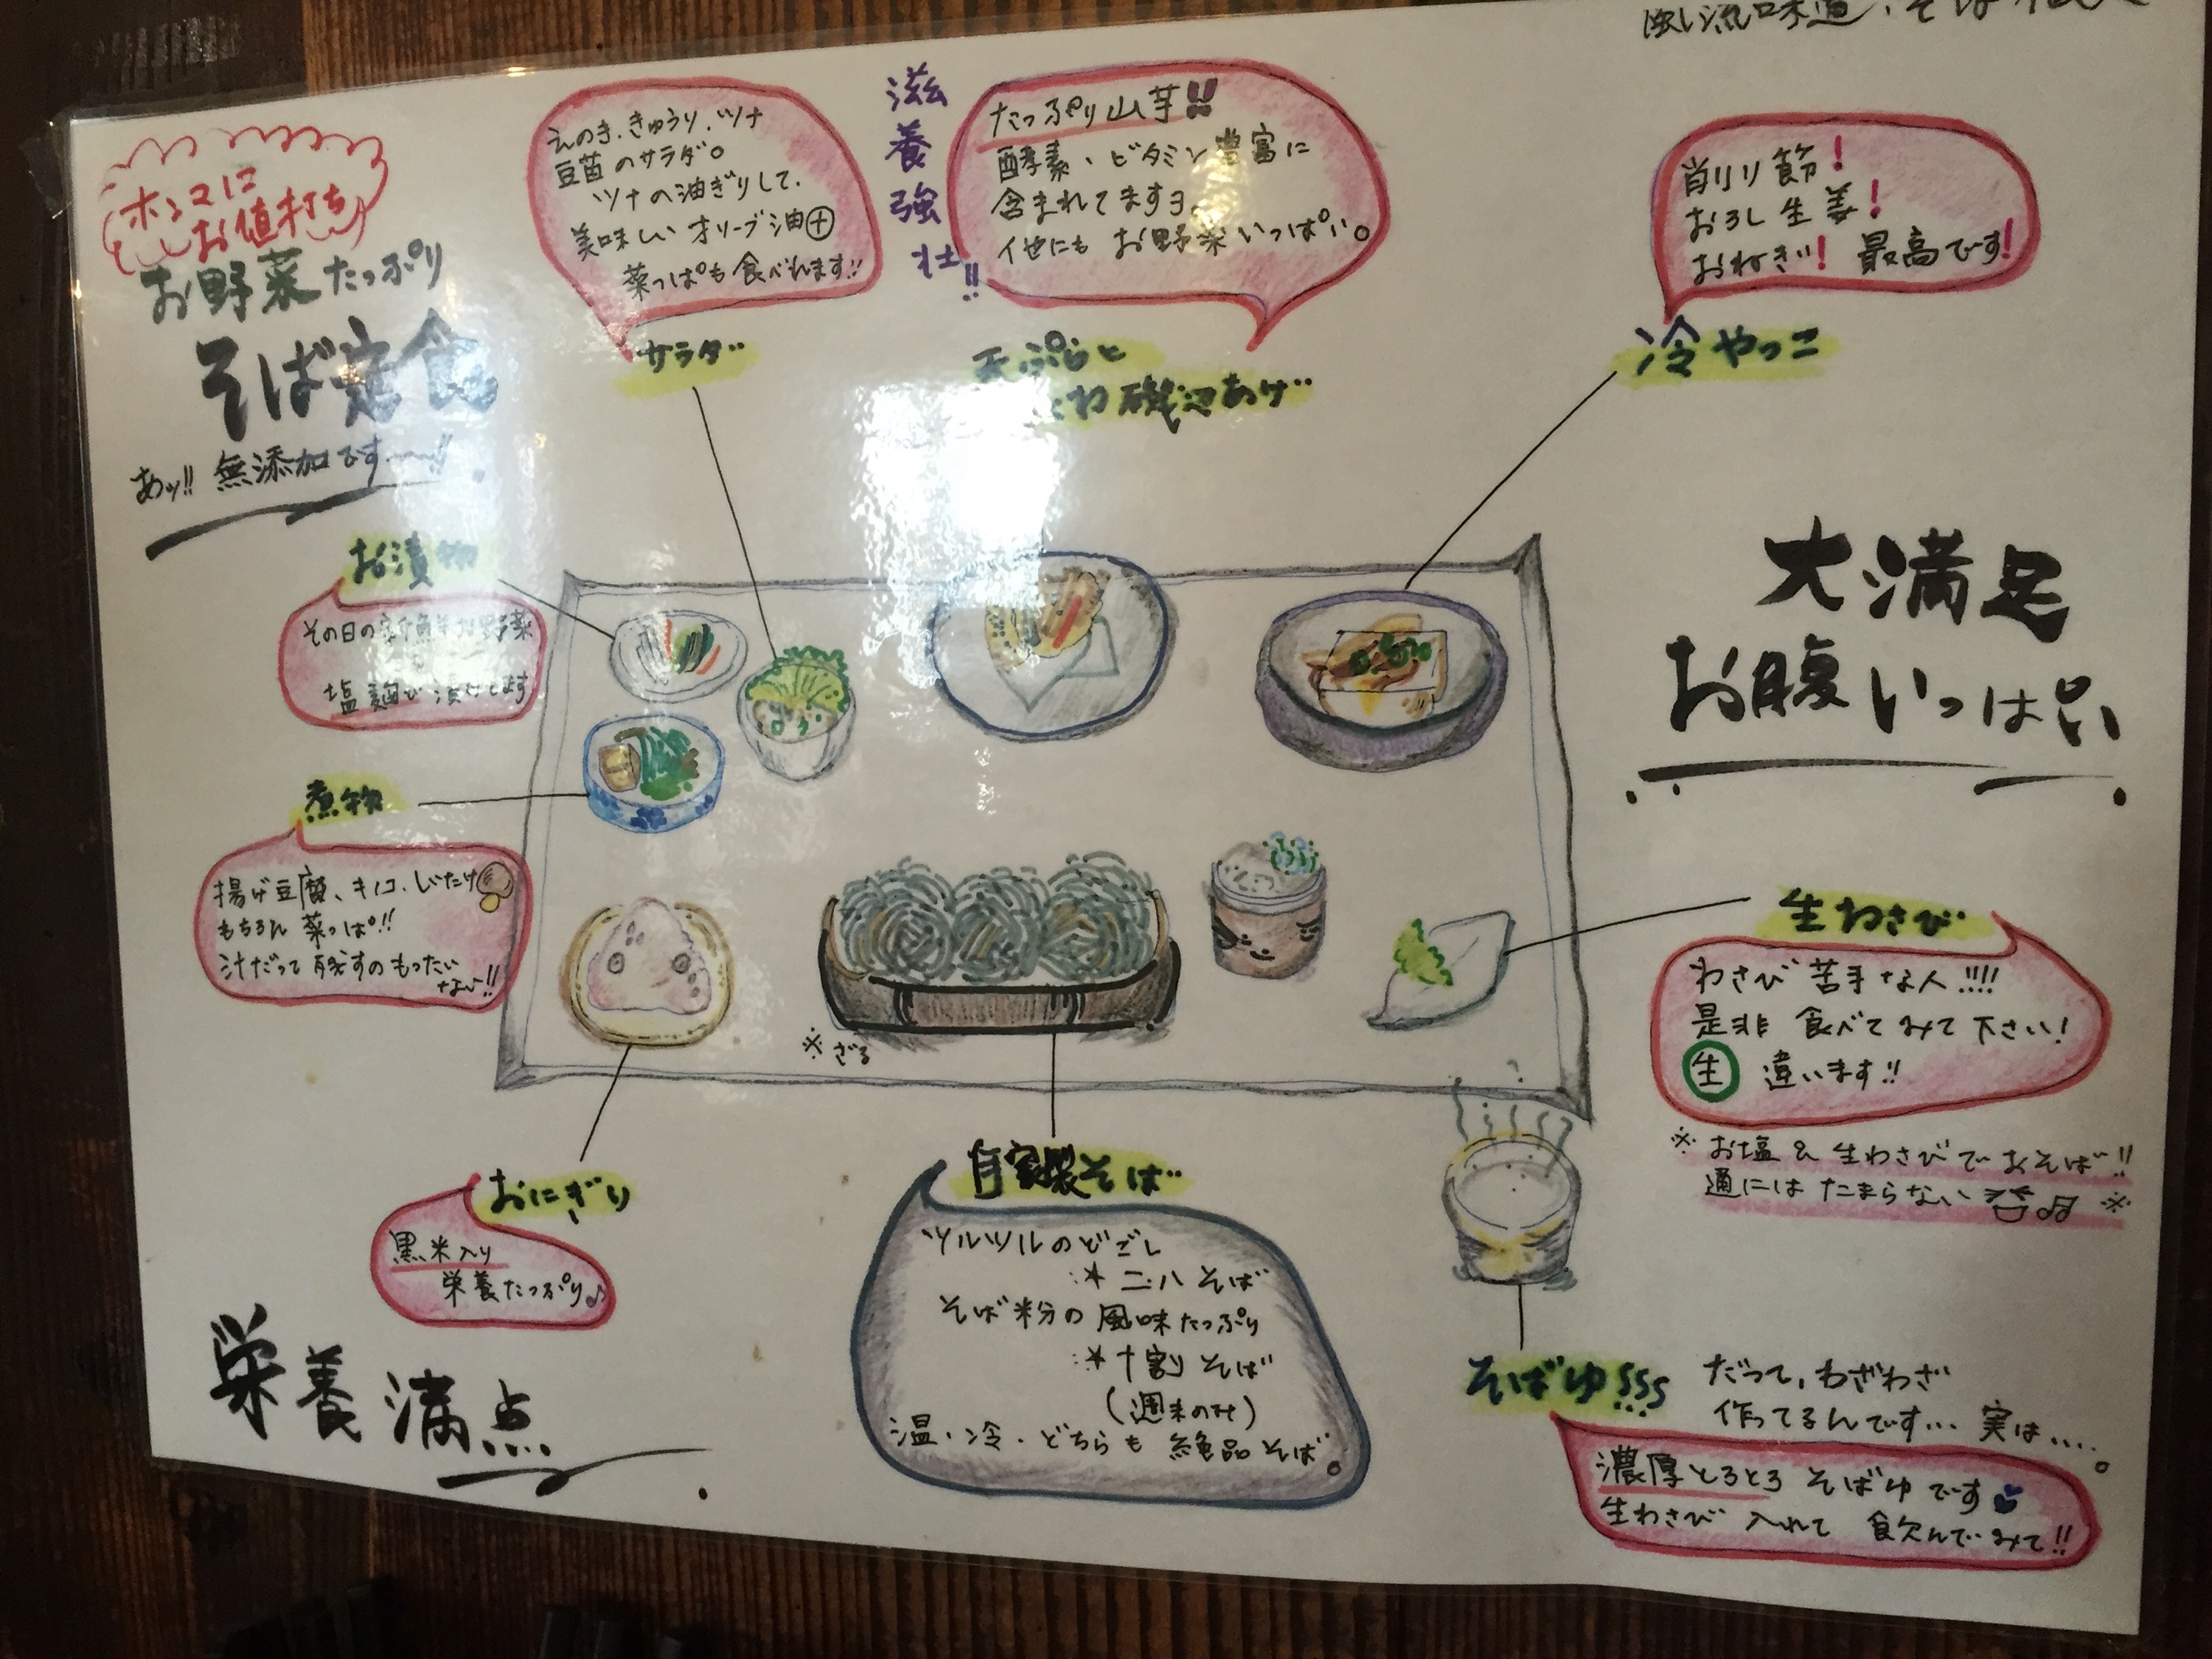 ホンマに
お値打ち
お野菜たっぷり
そば定食
あッ!! 無添加です〜!!
えのき、きゅうり、ツナ
豆苗のサラダ。
ツナの油ぎりして、
美味しいオリーブ油⊕
菜っぱも食べれます!!
サラダ
滋養強壮!!
たっぷり山芋!!
酵素、ビタミン豊富に
含まれてますョ。
他にもお野菜いっぱい。
天ぷらと
磯辺あげ
削り節!
おろし生姜!
おねぎ! 最高です!
冷やっこ
お漬物
その日の新鮮お野菜
塩麹で漬けてます
煮物
揚げ豆腐、キノコ、しいたけ
もちろん菜っぱ!!
汁だって残すのもったい
な〜!!
大満足
お腹いっぱい
生わさび
わさび苦手な人!!!!
是非食べてみて下さい!
生 違います!!
※お塩&生わさびでおそば!!
通にはたまらない ※
※ざる
おにぎり
黒米入り
栄養たっぷり♪
栄養満点
自家製そば
ツルツルのどごし
:*二八そば
そば粉の風味たっぷり
:*十割そば
(週末のみ)
温・冷・どちらも絶品そば。
そばゆ
だって、わざわざ
作ってるんです… 実は….
濃厚とろとろそばゆです
生わさび入れて飲んでみて!!